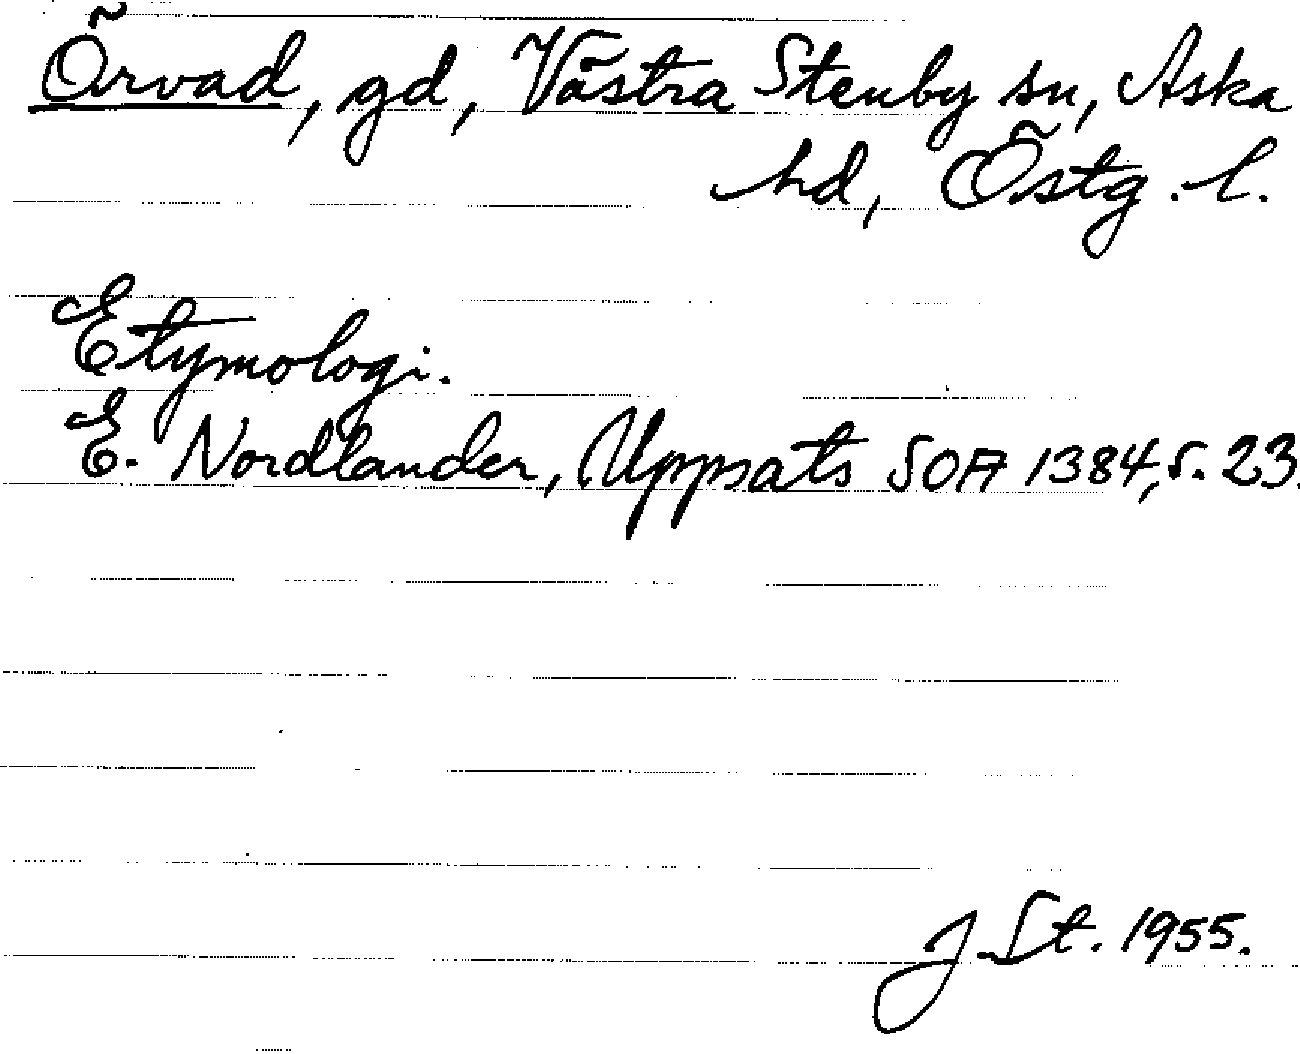 Örvad, gd, Västra Stenby sn, Aska
hd, Östg. l.
Etymologi.
E. Nordlander, Uppsats SOA 1384, s. 23.
J. St. 1955.